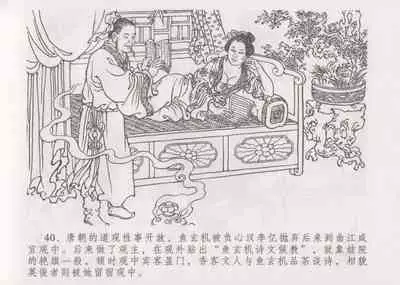 40、唐朝的道观性事开放，鱼玄机被负心汉李亿抛弃后来到曲江咸
宜观中。后来做了观主，在观外贴出“鱼玄机诗文候教”，就象妓院
的艳帜一般，顿时观中宾客盈门，香客文人与鱼玄机品茶谈诗，相貌
英俊者则被她留宿观中。